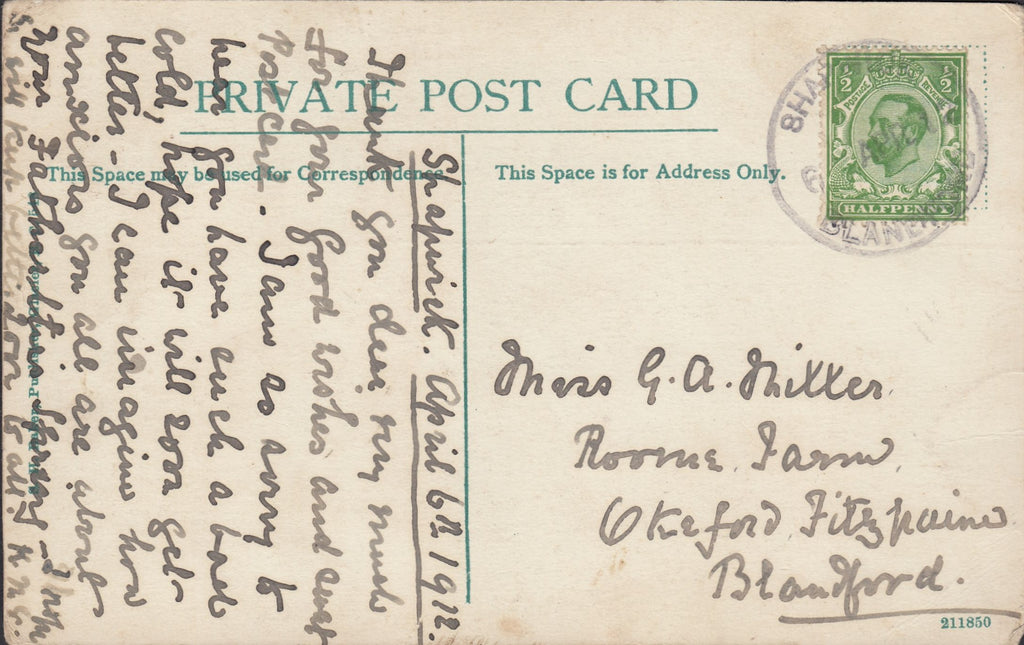 PRIVATE POST CARD
This Space may be used for Correspondence.
This Space is for Address Only.
½ ½
POSTAGE REVENUE
HALFPENNY
SHAP
BLAN
Shapwick. April 6th 1912.
Thank you dear very much
for your good wishes and
Postcard. I am so sorry to
hear you have such a bad
cold, hope it will soon get
better - I can imagine how
anxious you all are about
your Father's
Miss G. A. Miller.
Farm
Okeford Fitzpaine
Blandford.
211850